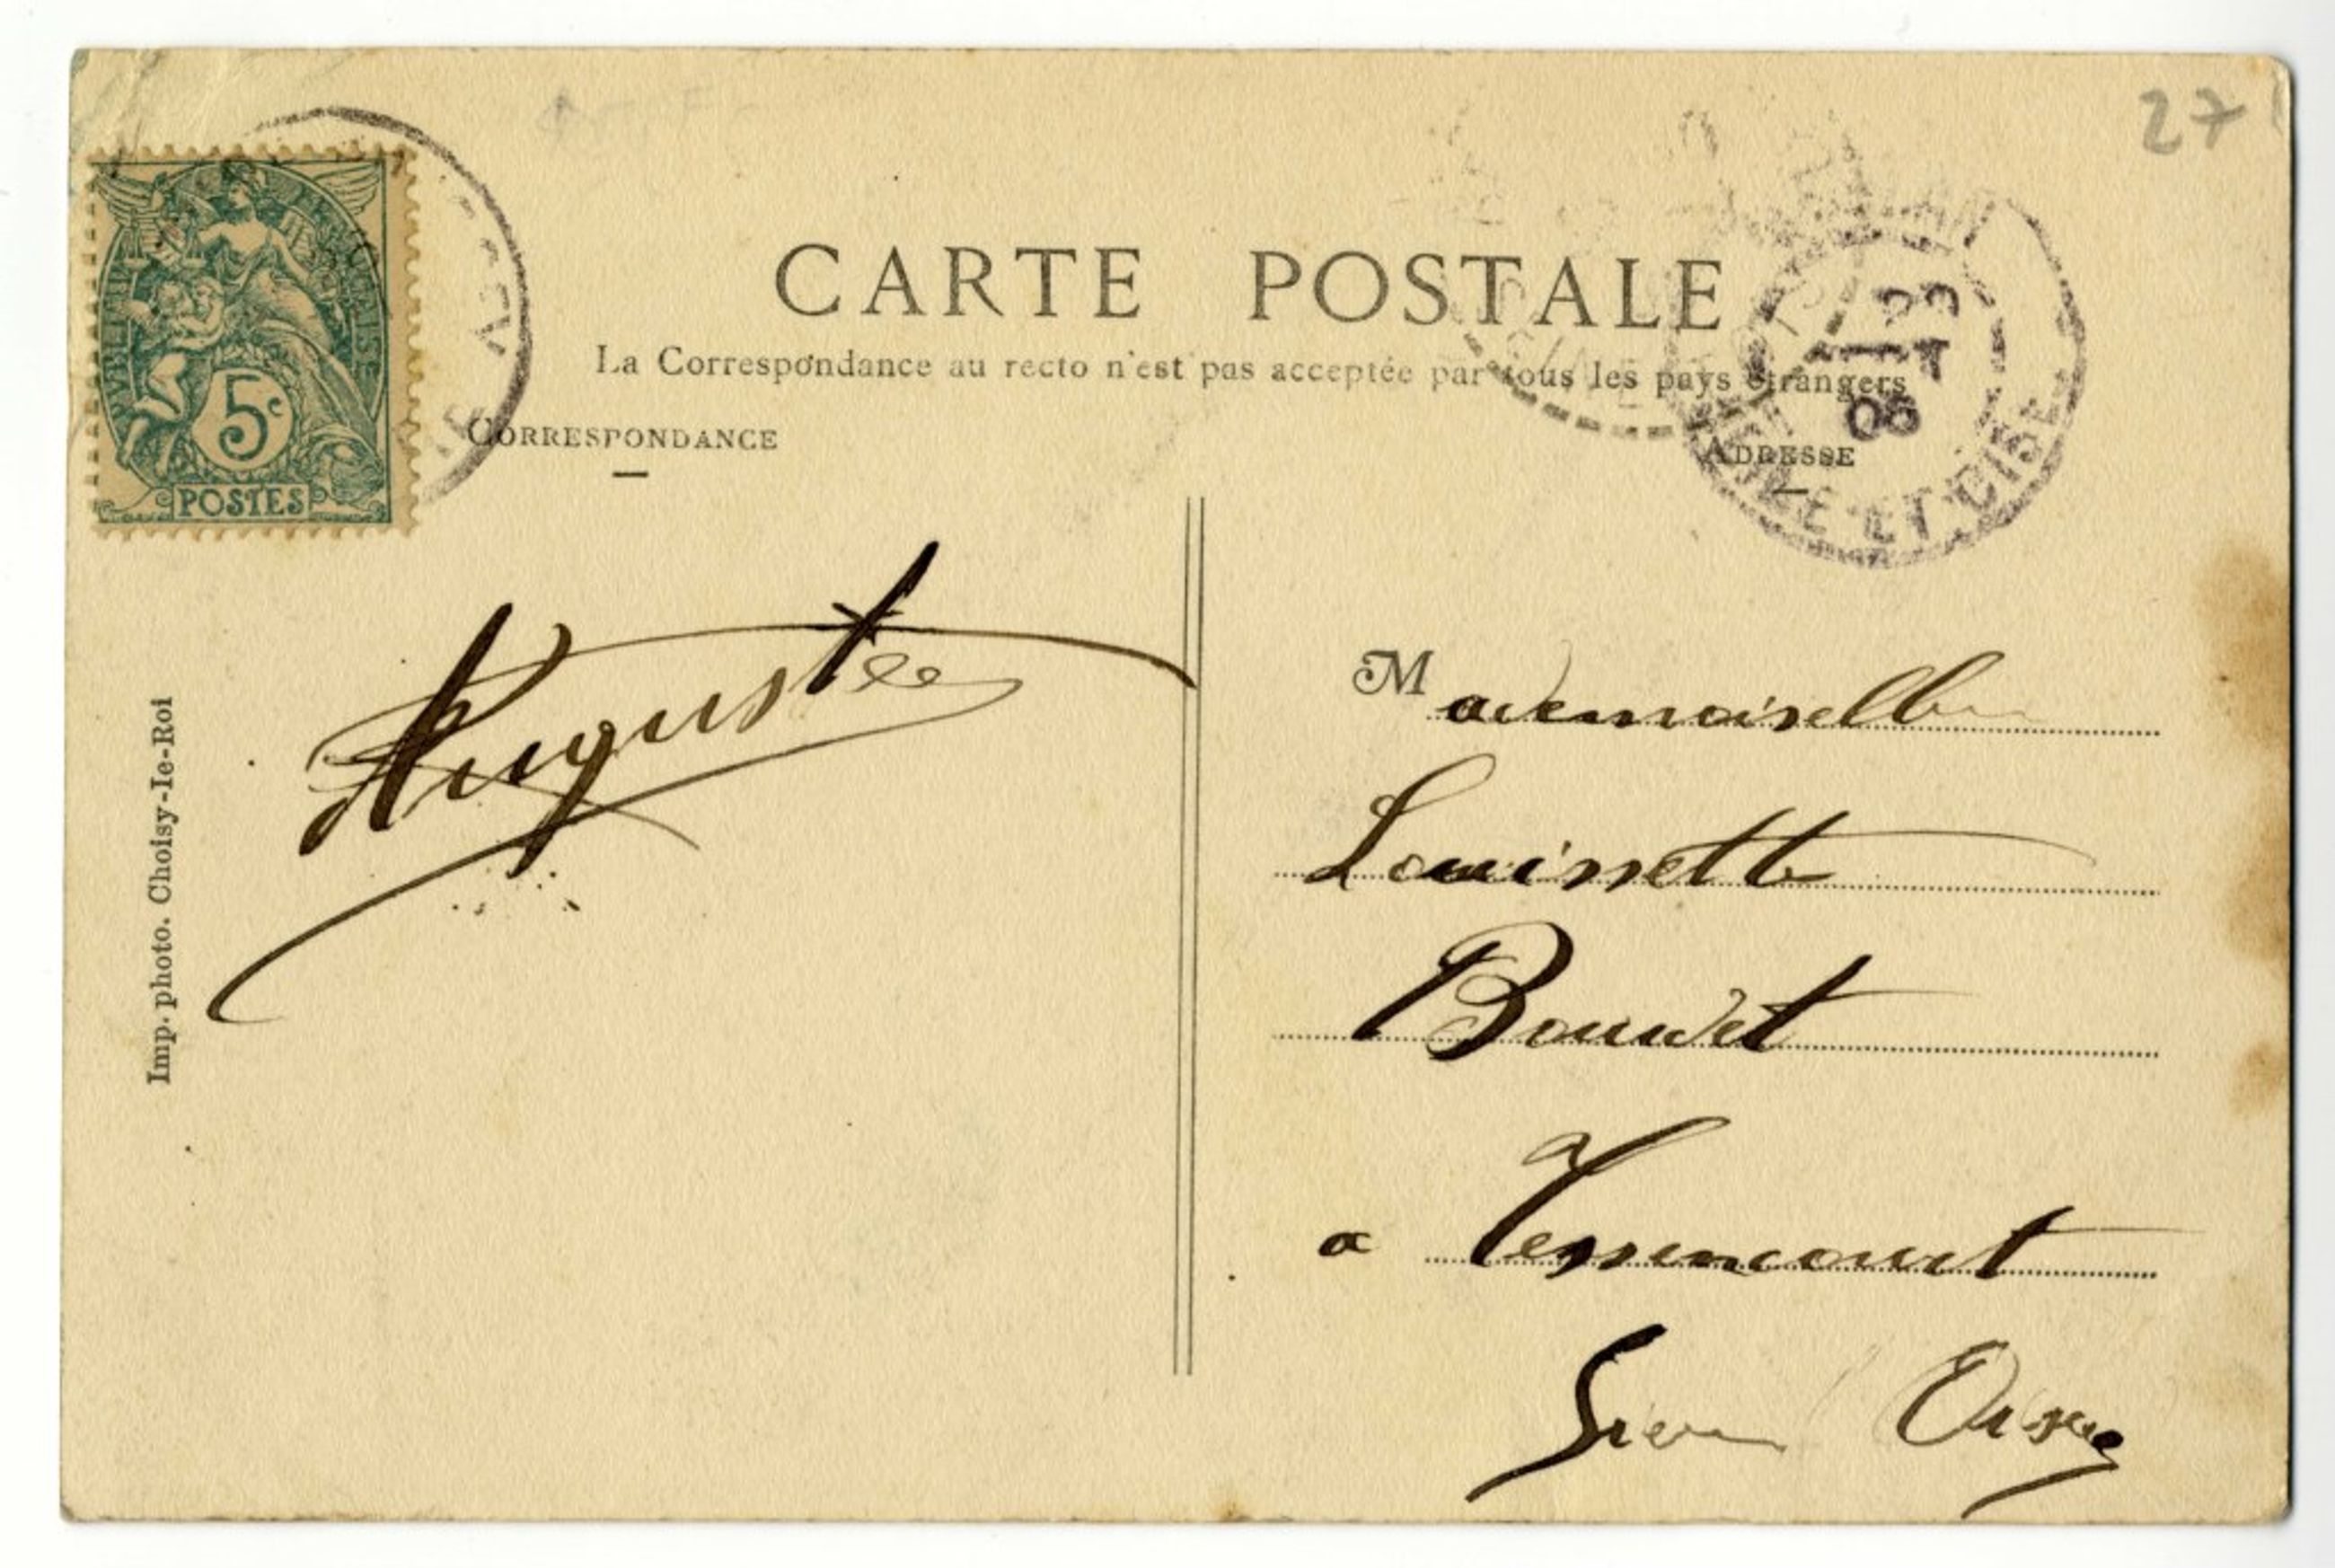 27
CARTE POSTALE
La Correspondance au recto n'est pas acceptée par tous les pays étrangers
CORRESPONDANCE
ADRESSE
RÉPUBLIQUE FRANÇAISE
5c
POSTES
06
SEINE ET OISE
Auguste
Mademoiselle
Louisette
Bouvet
a Tessencourt
Seine Oise
Imp. photo. Choisy-le-Roi